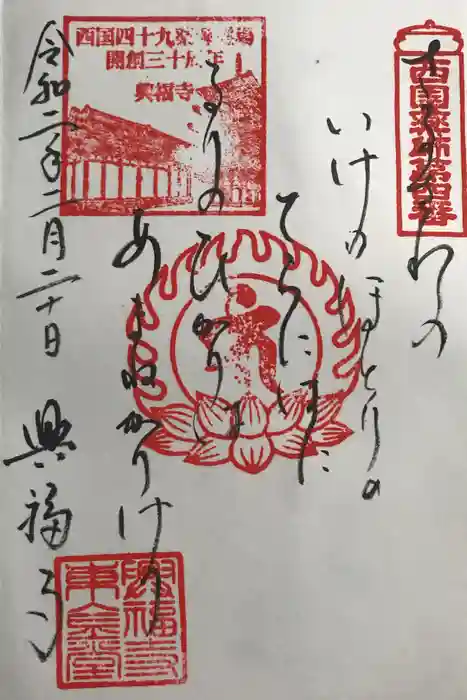 西国薬師第四番
さるさわの
いけのほとりの
てらに
るりのひかり
あまねかりけり
西国四十九薬師霊場
開創三十周年
興福寺
令和二年二月二十日 興福寺
興福寺
東金堂